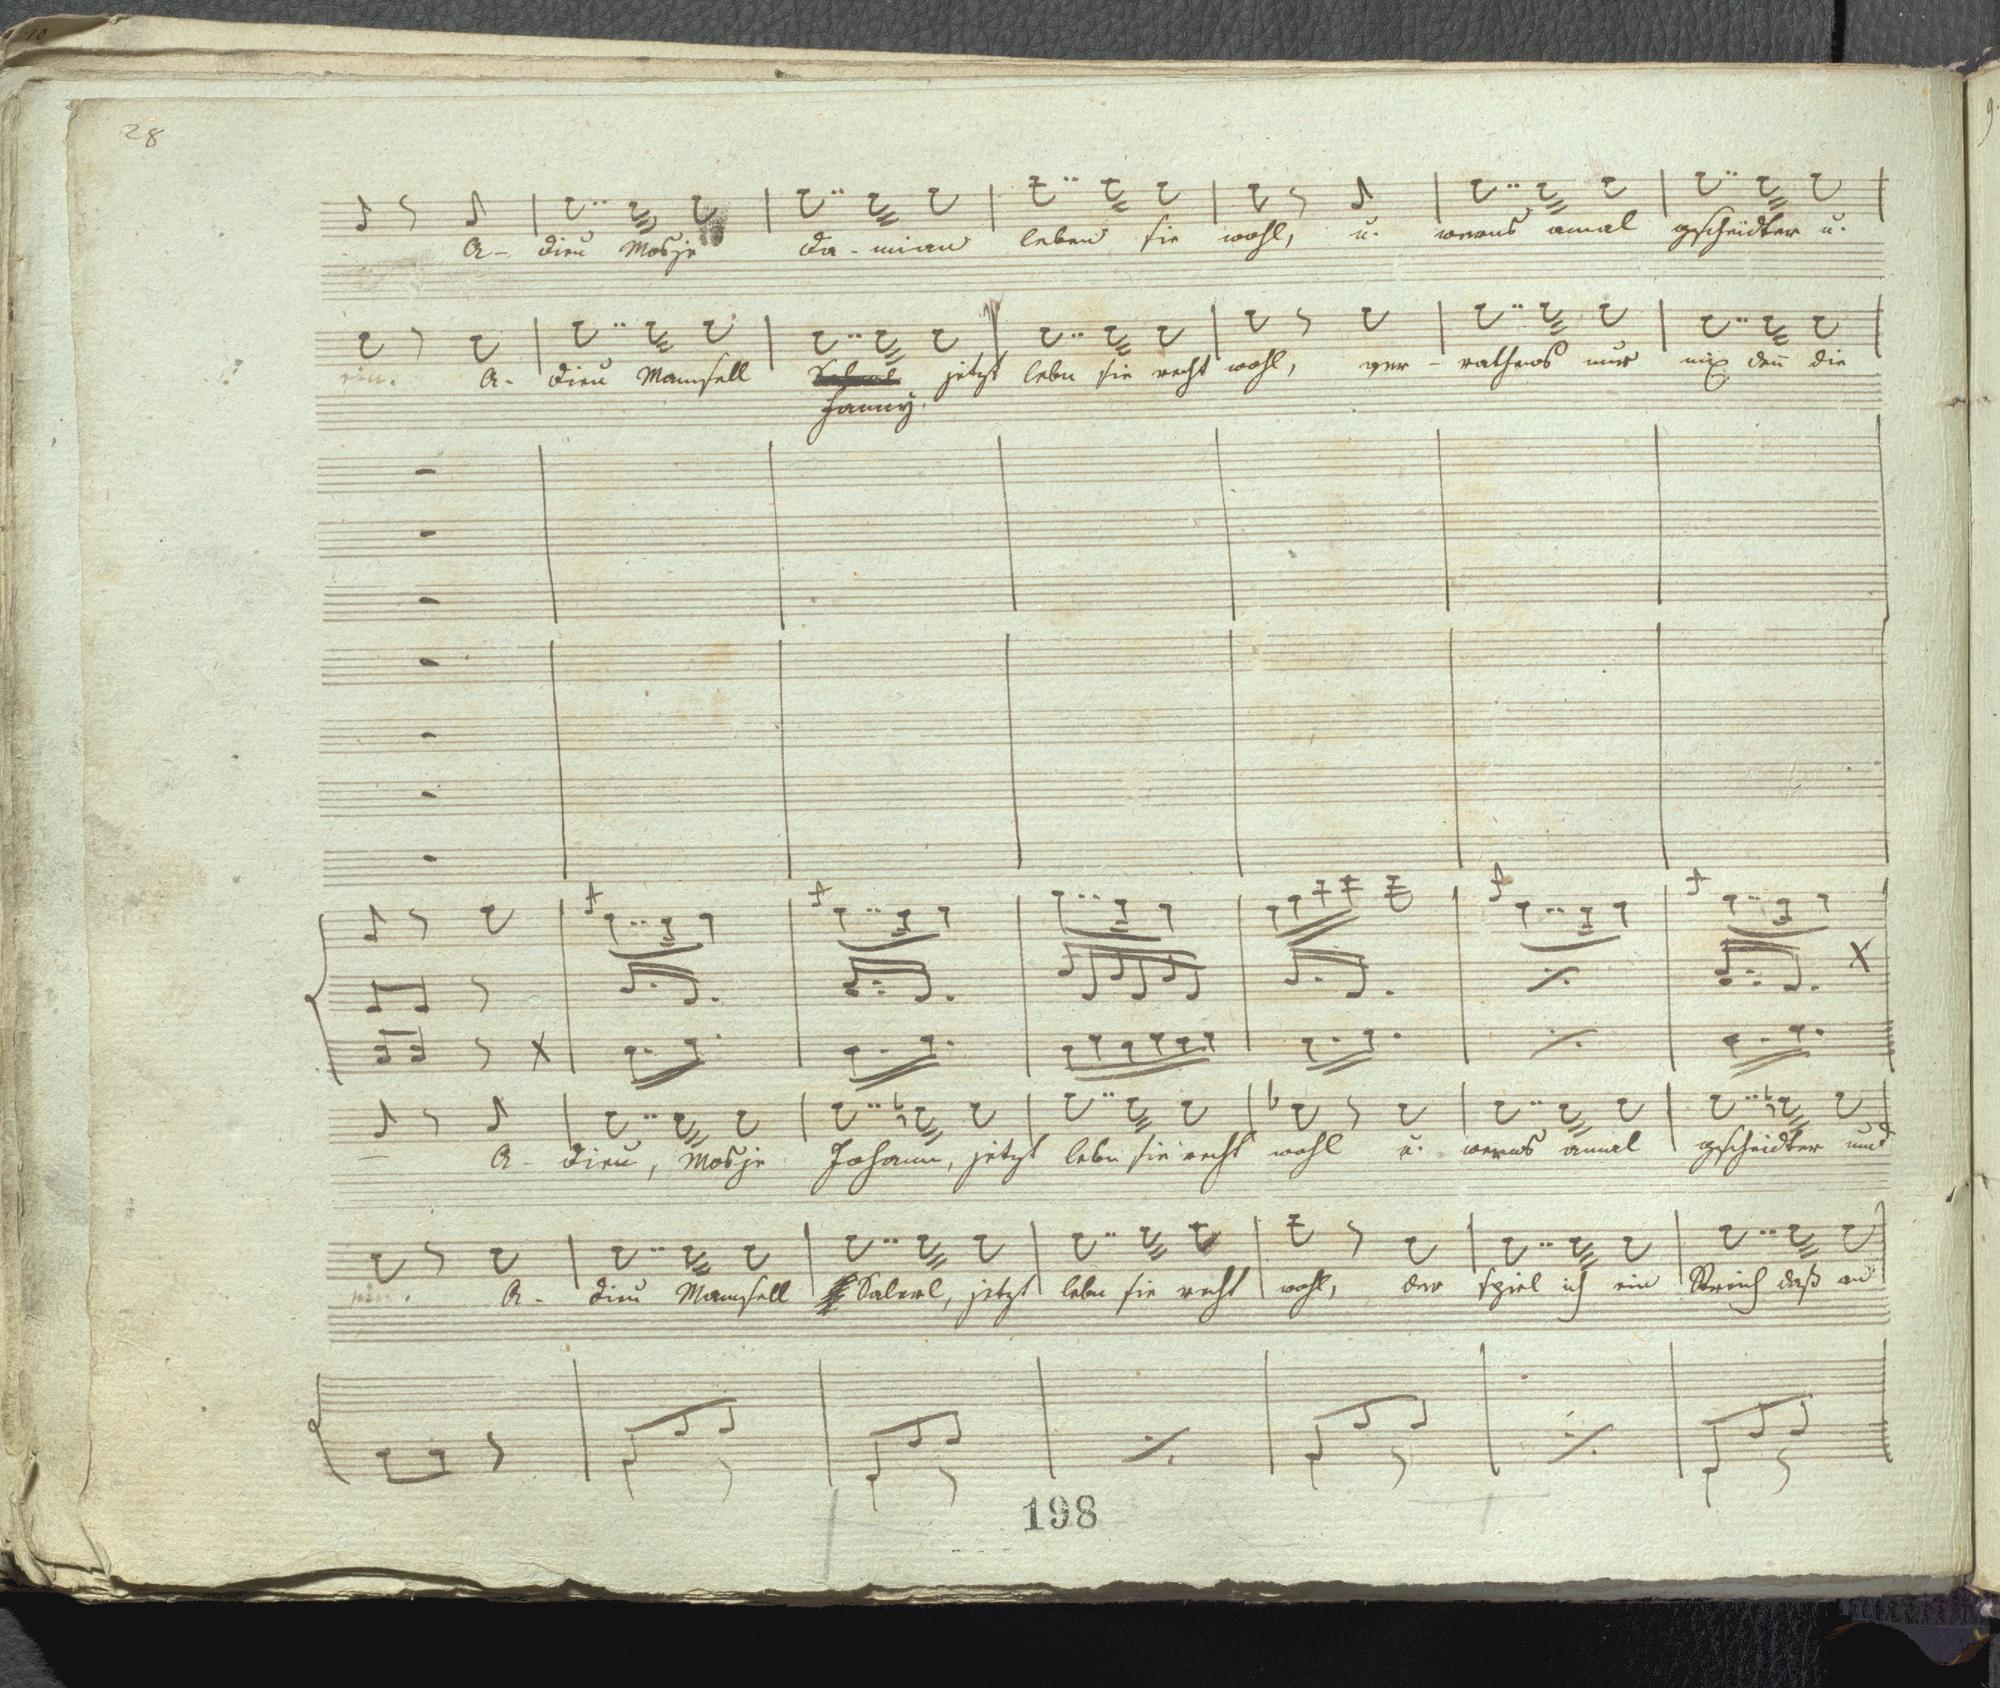 28
A- dieu Mosje Da-mian leben sie wohl, u. werns amal gscheidter u.
ein. A- dieu Mamsell jetzt lebn sie recht wohl, ver- rathens nur nix den̅ die
Fanny,
A- dieu, Mosje Johann, jetzt lebn sie recht wohl u. werns amal gscheidter und
ein. A- dieu Mamsell Salerl, jetzt lebn sie recht wohl, der spiel ich ein Streich daß an
198